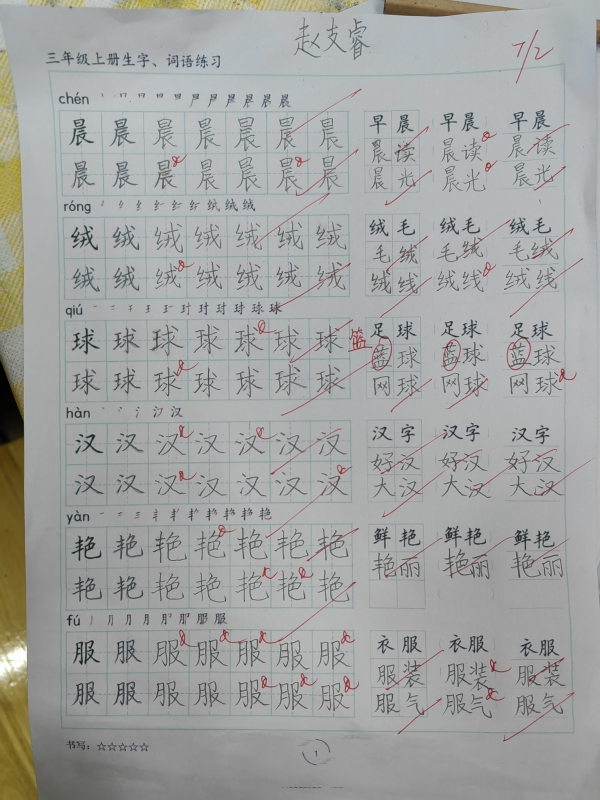 赵支睿
7/2
三年级上册生字、词语练习
chén
晨晨晨晨晨晨晨 早晨 早晨 早晨
晨读 晨读 晨读
晨晨晨晨晨晨晨 晨光 晨光 晨光
róng
绒绒绒绒绒绒绒 绒毛 绒毛 绒毛
毛绒 毛绒 毛绒
绒绒绒绒绒绒绒 绒线 绒线 绒线
qiú
球球球球球球球 足球 足球 足球
篮
蓝球 蓝球 蓝球
球球球球球球球 网球 网球 网球
hàn
汉汉汉汉汉汉汉 汉字 汉字 汉字
好汉 好汉 好汉
汉汉汉汉汉汉汉 大汉 大汉 大汉
yàn
艳艳艳艳艳艳艳 鲜艳 鲜艳 鲜艳
艳丽 艳丽 艳丽
艳艳艳艳艳艳艳
fú
服服服服服服服 衣服 衣服 衣服
服装 服装 服装
服服服服服服服 服气 服气 服气
书写：☆☆☆☆☆
1